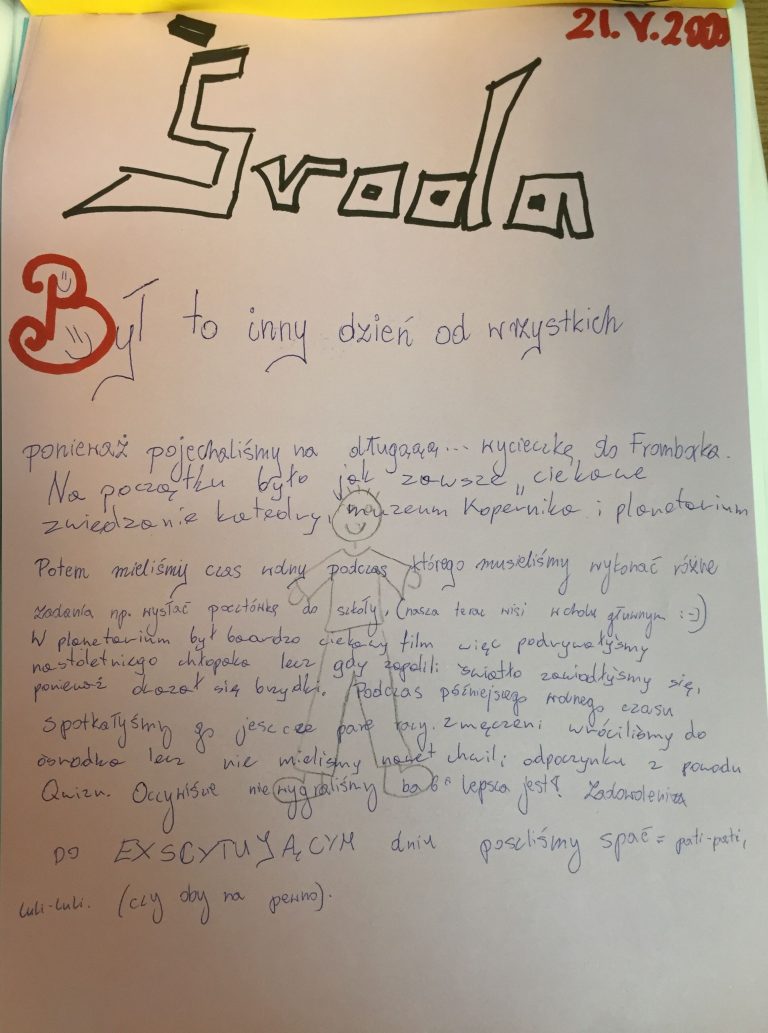 21.V.2003
Środa
Był to inny dzień od wrzystkich
ponieważ pojechaliśmy na długąąą... wycieczkę do Fromborka.
Na początku było jak zawsze "ciekawe
zwiedzanie katedry, muzeum Kopernika i planetarium
Potem mieliśmy czas wolny podczas którego musieliśmy wykonać różne
zadania np. wysłać pocztówkę do szkoły, (nasza teraz wisi w cholu głuwnym :-)
W planetarium był baardzo ciekawy film więc podrywałyśmy
nastoletniego chłopaka lecz gdy zapalili światło zawiodłyśmy się,
ponieważ okazał się brzydki. Podczas późniejszego wolnego czasu
spotkałyśmy go jeszcze parę razy. zmęczeni wróciliśmy do
ośrodka lecz nie mieliśmy nawet chwili odpoczynku z powodu
Quizu. Oczywiście nie wygraliśmy bo 6a lepsza jest? Zadowoleniza
po EXSCYTUJĄCYM dniu poszliśmy spać = pati-pati,
luli-luli. (czy aby na pewno).